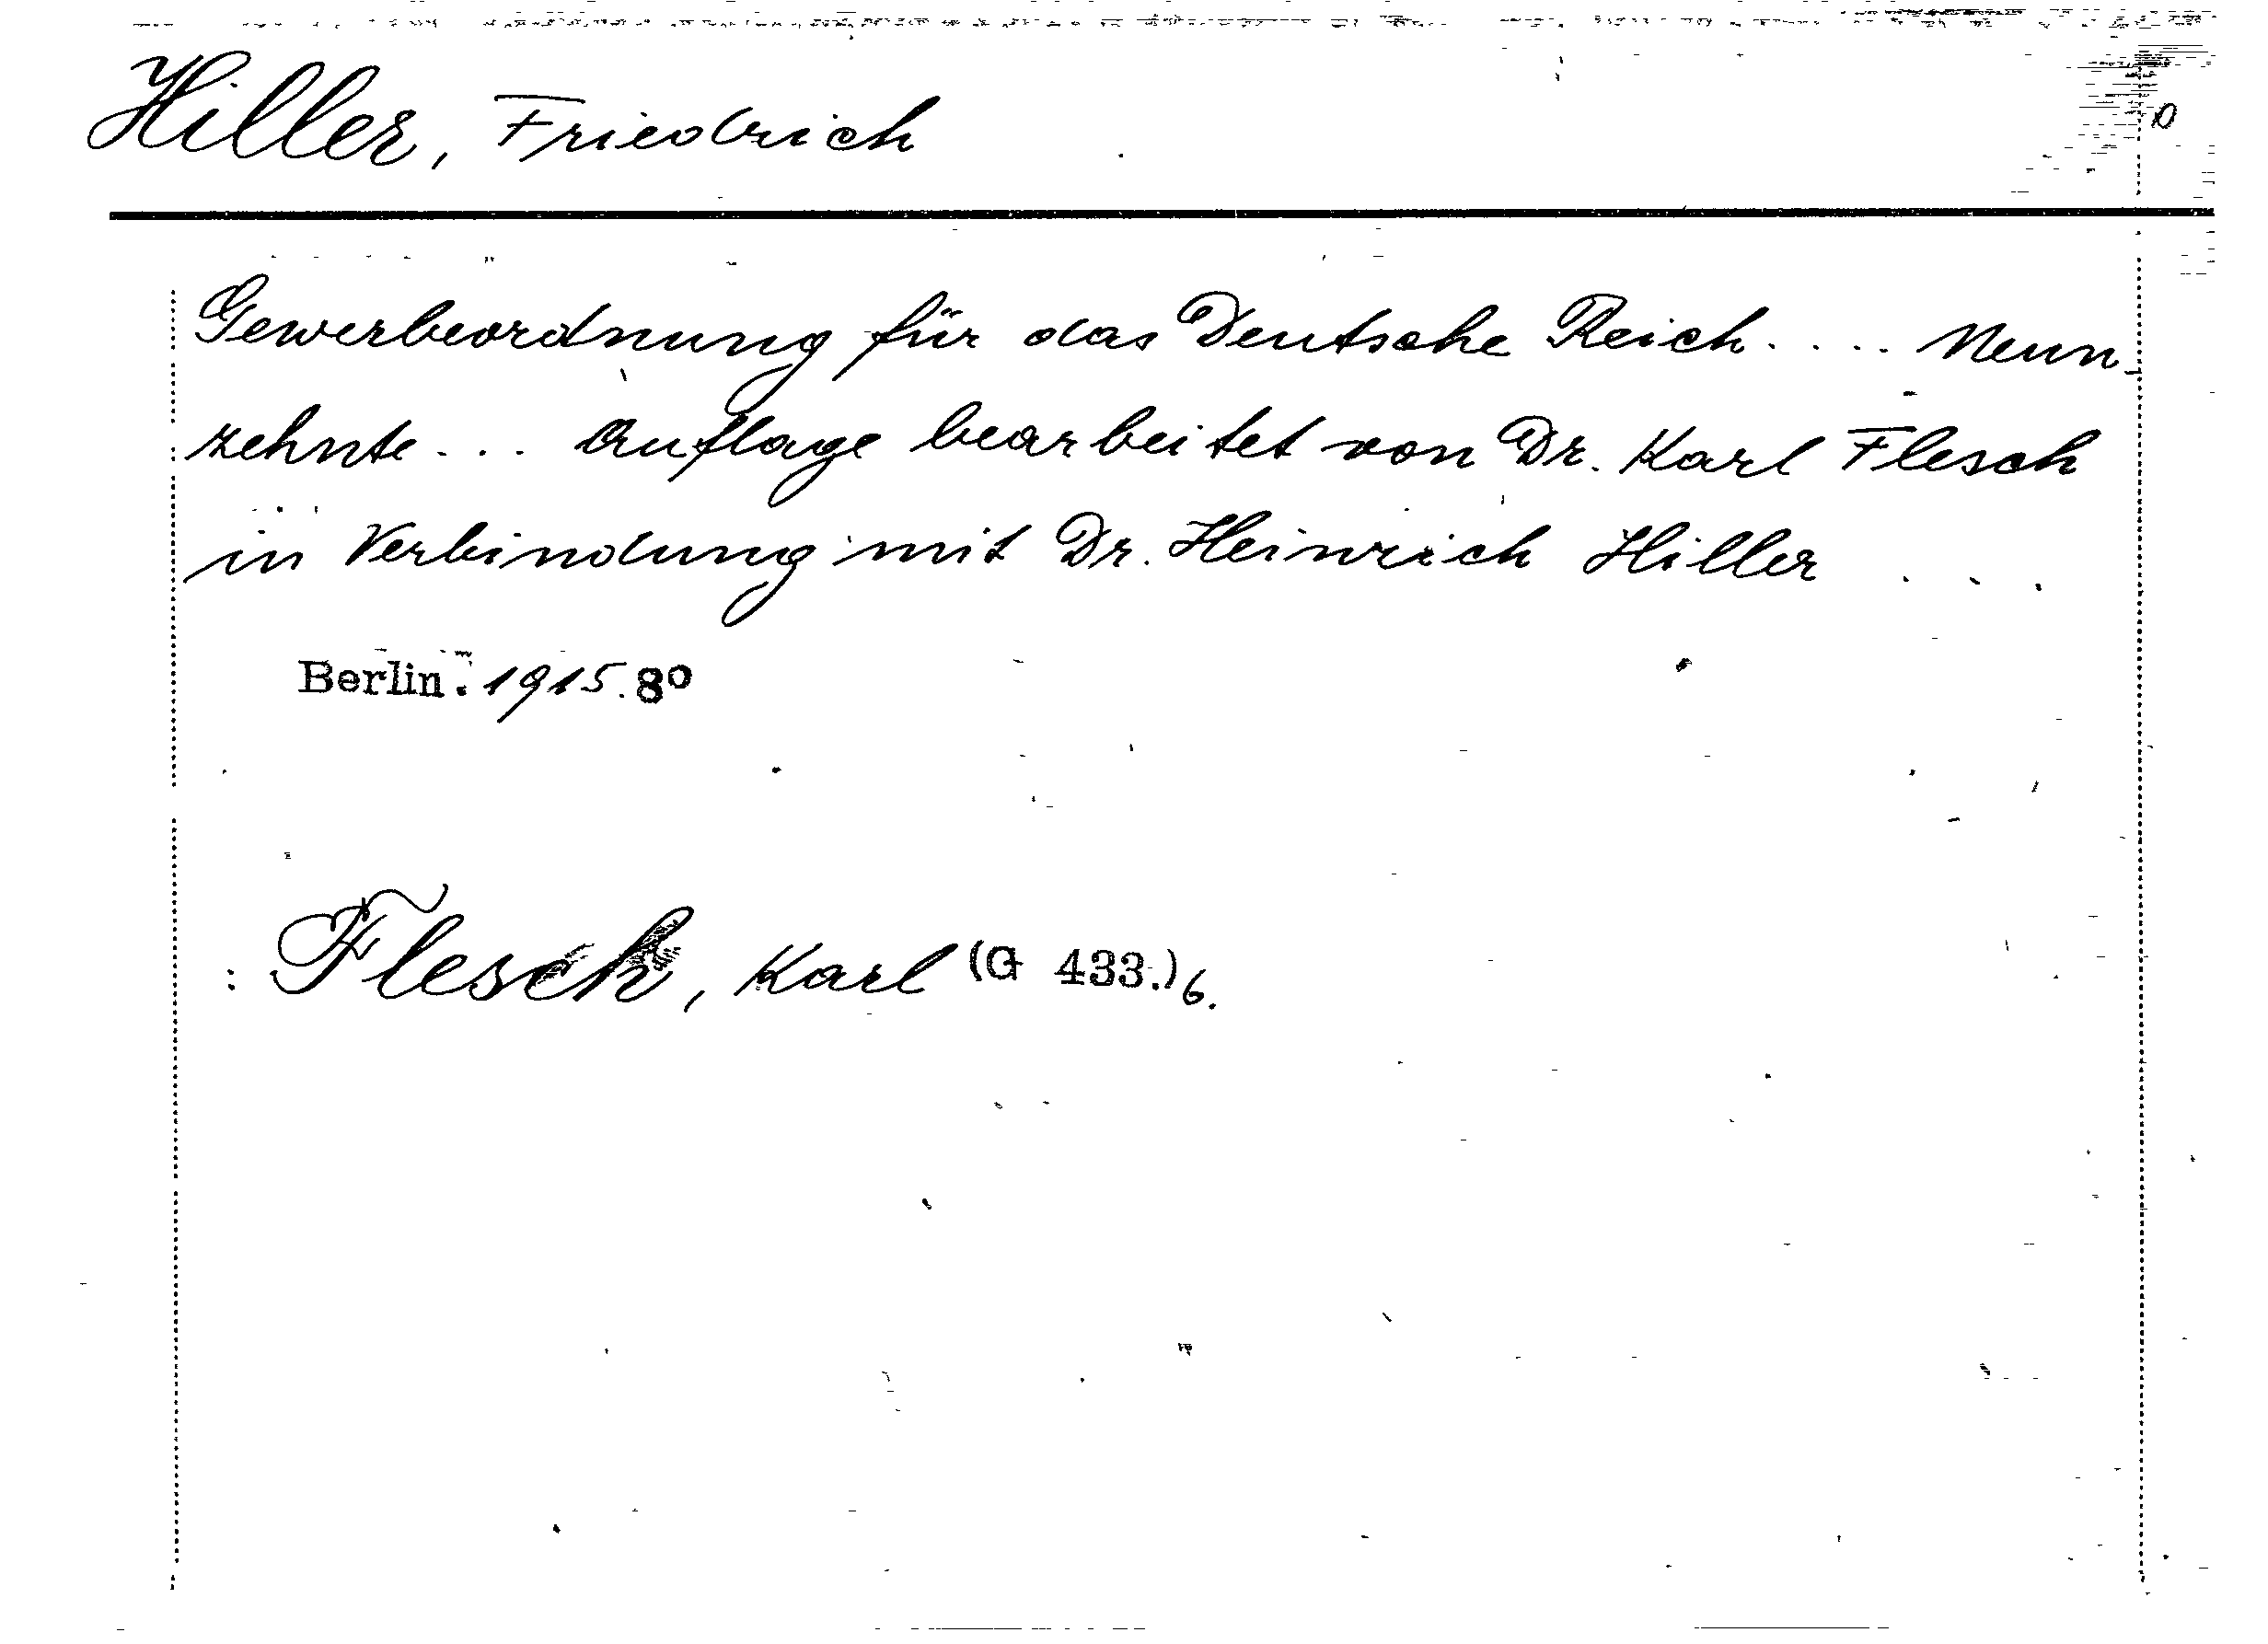 Hiller, Friedrich
Gewerbeordnung für das Deutsche Reich. ... Neun-
zehnte ... Auflage bearbeitet von Dr. Karl Flesch
in Verbindung mit Dr. Heinrich Hiller ...
Berlin. 1915. 8º
: Flesch, Karl (G 433.) 6.